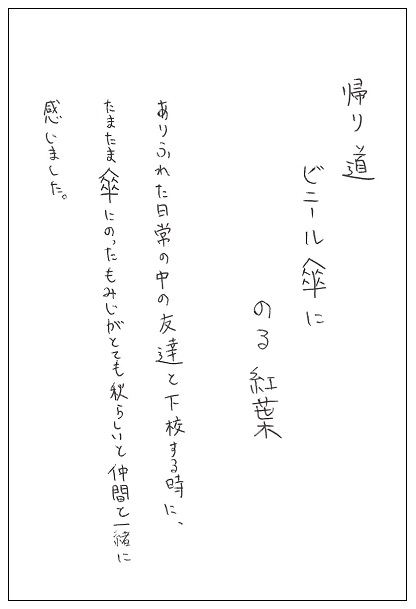 帰り道
ビニール傘に
のる紅葉
ありふれた日常の中の友達と下校する時に、
たまたま傘にのったもみじがとても秋らしいと仲間と一緒に
感じました。